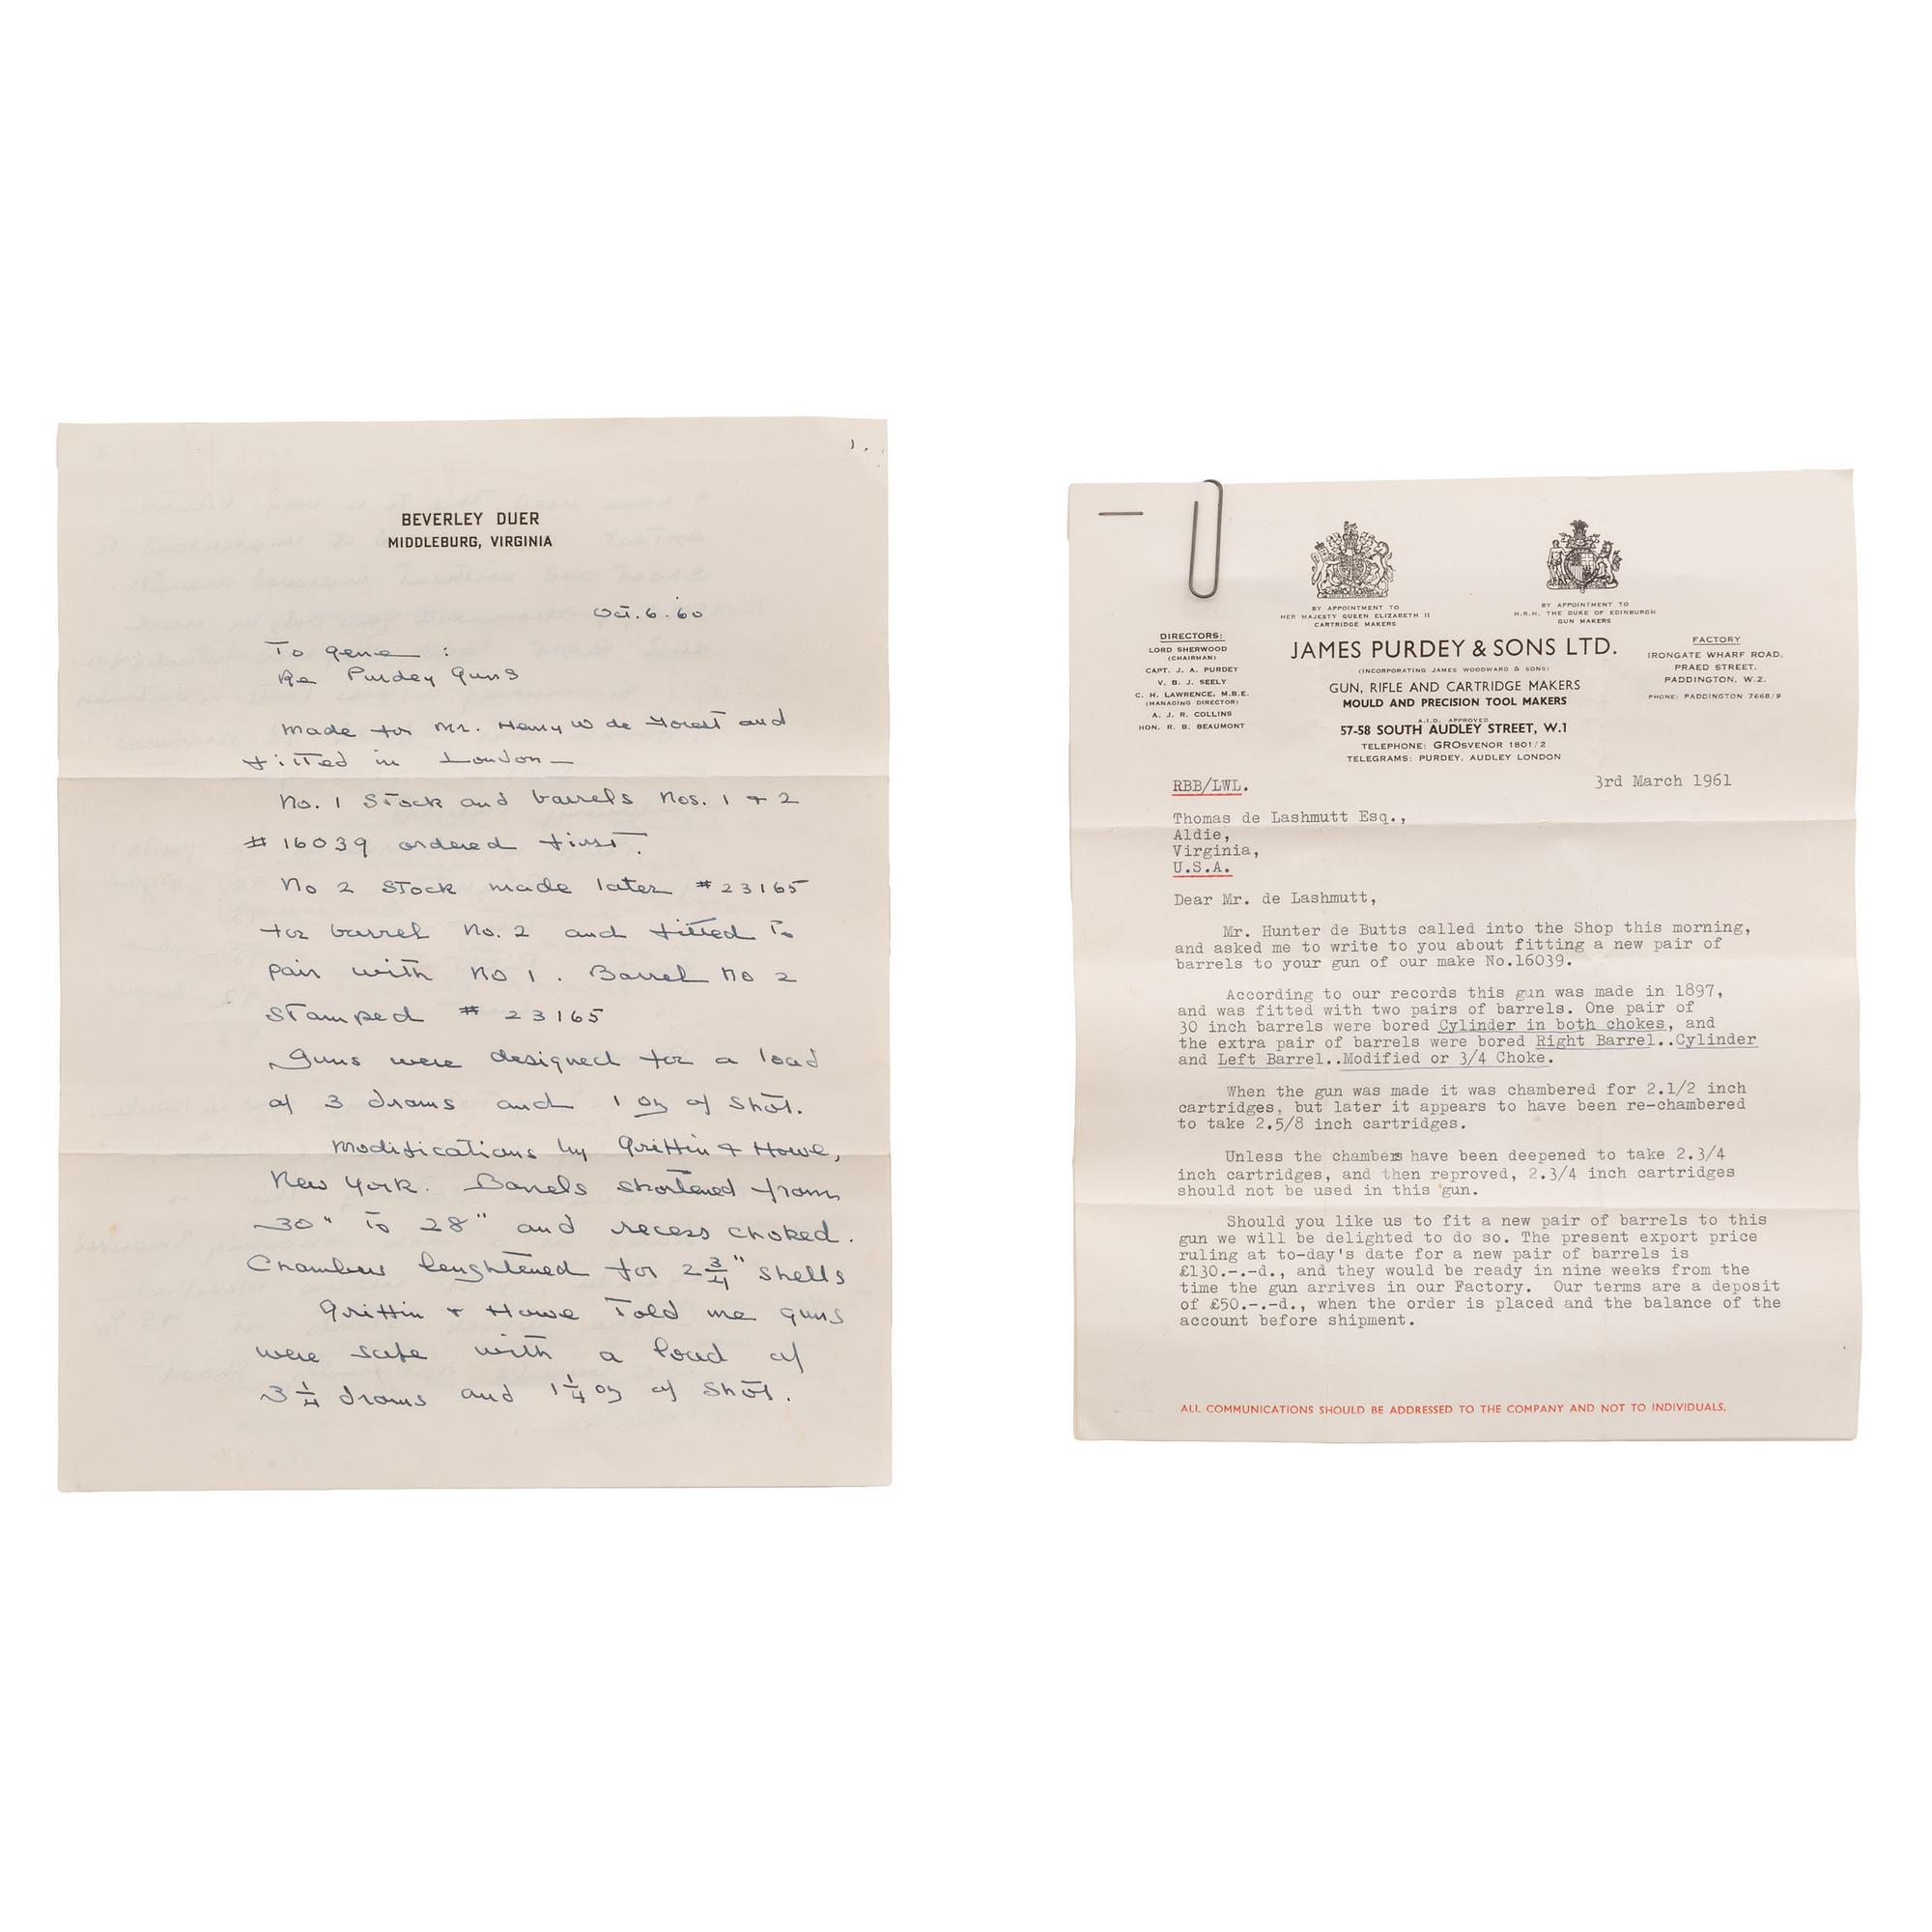 BEVERLEY DUER
MIDDLEBURG, VIRGINIA
Oct. 6. '60
To Gene :
Re Purdey Guns
Made for Mr. Henry W de Forest and
fitted in London —
No. 1 Stock and barrels Nos. 1 & 2
# 16039 ordered first.
No 2 Stock made later # 23165
for barrel No. 2 and fitted to
pair with No 1. Barrel No 2
Stamped # 23165
Guns were designed for a load
of 3 drams and 1 oz of Shot.
Modifications by Griffin & Howe,
New York. Barrels shortened from
30" to 28" and recess choked.
Chambers lenghtened for 2 3/4" shells
Griffin & Howe told me guns
were safe with a load of
3 1/4 drams and 1 1/4 oz of Shot.
BY APPOINTMENT TO
HER MAJESTY QUEEN ELIZABETH II
CARTRIDGE MAKERS
BY APPOINTMENT TO
H.R.H. THE DUKE OF EDINBURGH
GUN MAKERS
DIRECTORS:
LORD SHERWOOD
(CHAIRMAN)
CAPT. J. A. PURDEY
V. B. J. SEELY
C. H. LAWRENCE, M.B.E.
(MANAGING DIRECTOR)
A. J. R. COLLINS
HON. R. B. BEAUMONT
JAMES PURDEY & SONS LTD.
(INCORPORATING JAMES WOODWARD & SONS)
GUN, RIFLE AND CARTRIDGE MAKERS
MOULD AND PRECISION TOOL MAKERS
A.I.D. APPROVED
57-58 SOUTH AUDLEY STREET, W.1
TELEPHONE: GROSVENOR 1801/2
TELEGRAMS: PURDEY, AUDLEY LONDON
FACTORY
IRONGATE WHARF ROAD,
PRAED STREET,
PADDINGTON, W.2.
PHONE: PADDINGTON 7668/9
RBB/LWL.
3rd March 1961
Thomas de Lashmutt Esq.,
Aldie,
Virginia,
U.S.A.
Dear Mr. de Lashmutt,
Mr. Hunter de Butts called into the Shop this morning,
and asked me to write to you about fitting a new pair of
barrels to your gun of our make No.16039.
According to our records this gun was made in 1897,
and was fitted with two pairs of barrels. One pair of
30 inch barrels were bored Cylinder in both chokes, and
the extra pair of barrels were bored Right Barrel..Cylinder
and Left Barrel..Modified or 3/4 Choke.
When the gun was made it was chambered for 2.1/2 inch
cartridges, but later it appears to have been re-chambered
to take 2.5/8 inch cartridges.
Unless the chambers have been deepened to take 2.3/4
inch cartridges, and then reproved, 2.3/4 inch cartridges
should not be used in this gun.
Should you like us to fit a new pair of barrels to this
gun we will be delighted to do so. The present export price
ruling at to-day's date for a new pair of barrels is
£130.-.-d., and they would be ready in nine weeks from the
time the gun arrives in our Factory. Our terms are a deposit
of £50.-.-d., when the order is placed and the balance of the
account before shipment.
ALL COMMUNICATIONS SHOULD BE ADDRESSED TO THE COMPANY AND NOT TO INDIVIDUALS.